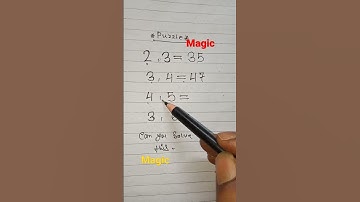 *Puzzle*
Magic
2, 3 = 35
3, 4 = 47
4, 5 =
3,
Can you solve
this.
Magic